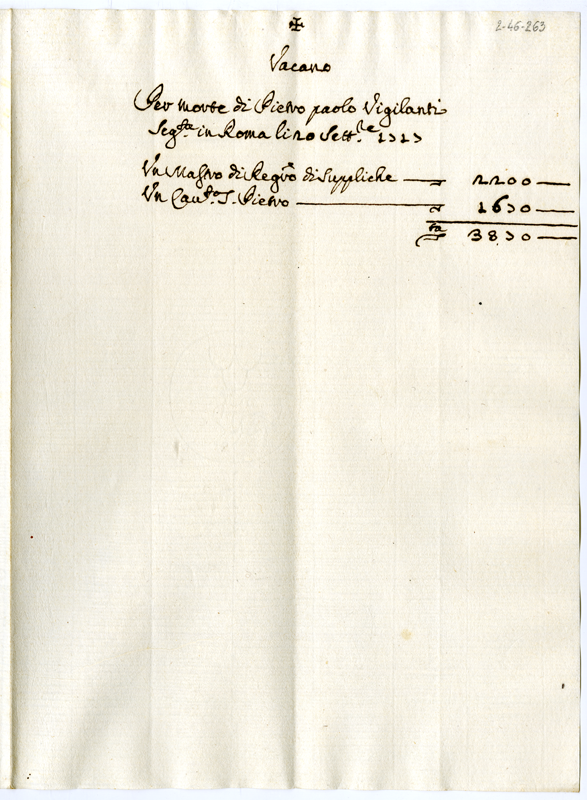 ✠
2-46-263
Vacano
Per morte di Pietro paolo Vigilanti
Seg.ta in Roma li 20 Sett.re
Un Mastro di Reg.ro di Suppliche — 2200 —
Un Cau.to S. Pietro — 1630 —
3830 —